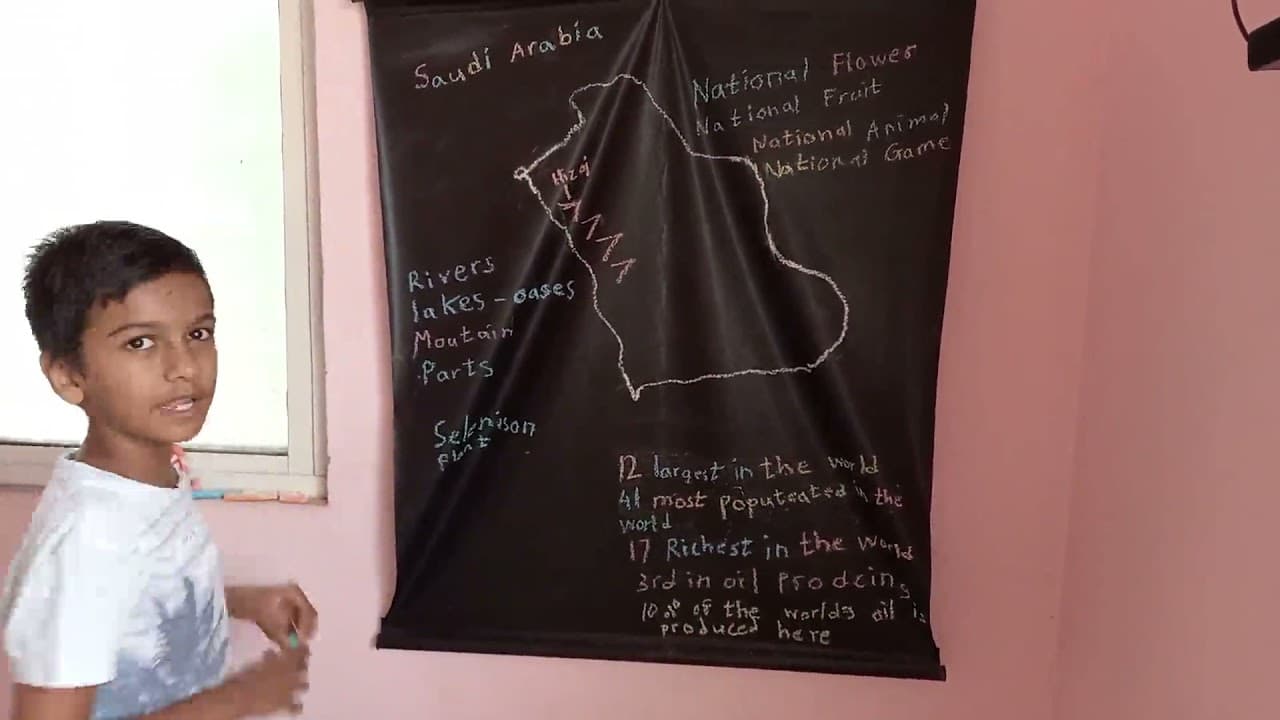 Saudi Arabia
National Flower
National Fruit
National Animal
National Game
Hizaj
Rivers
lakes - oases
Moutain
Parts
12 largest in the world
41 most poputeated in the
world
17 Richest in the World
3rd in oil Prodcing
10% of the worlds oil is
produced here